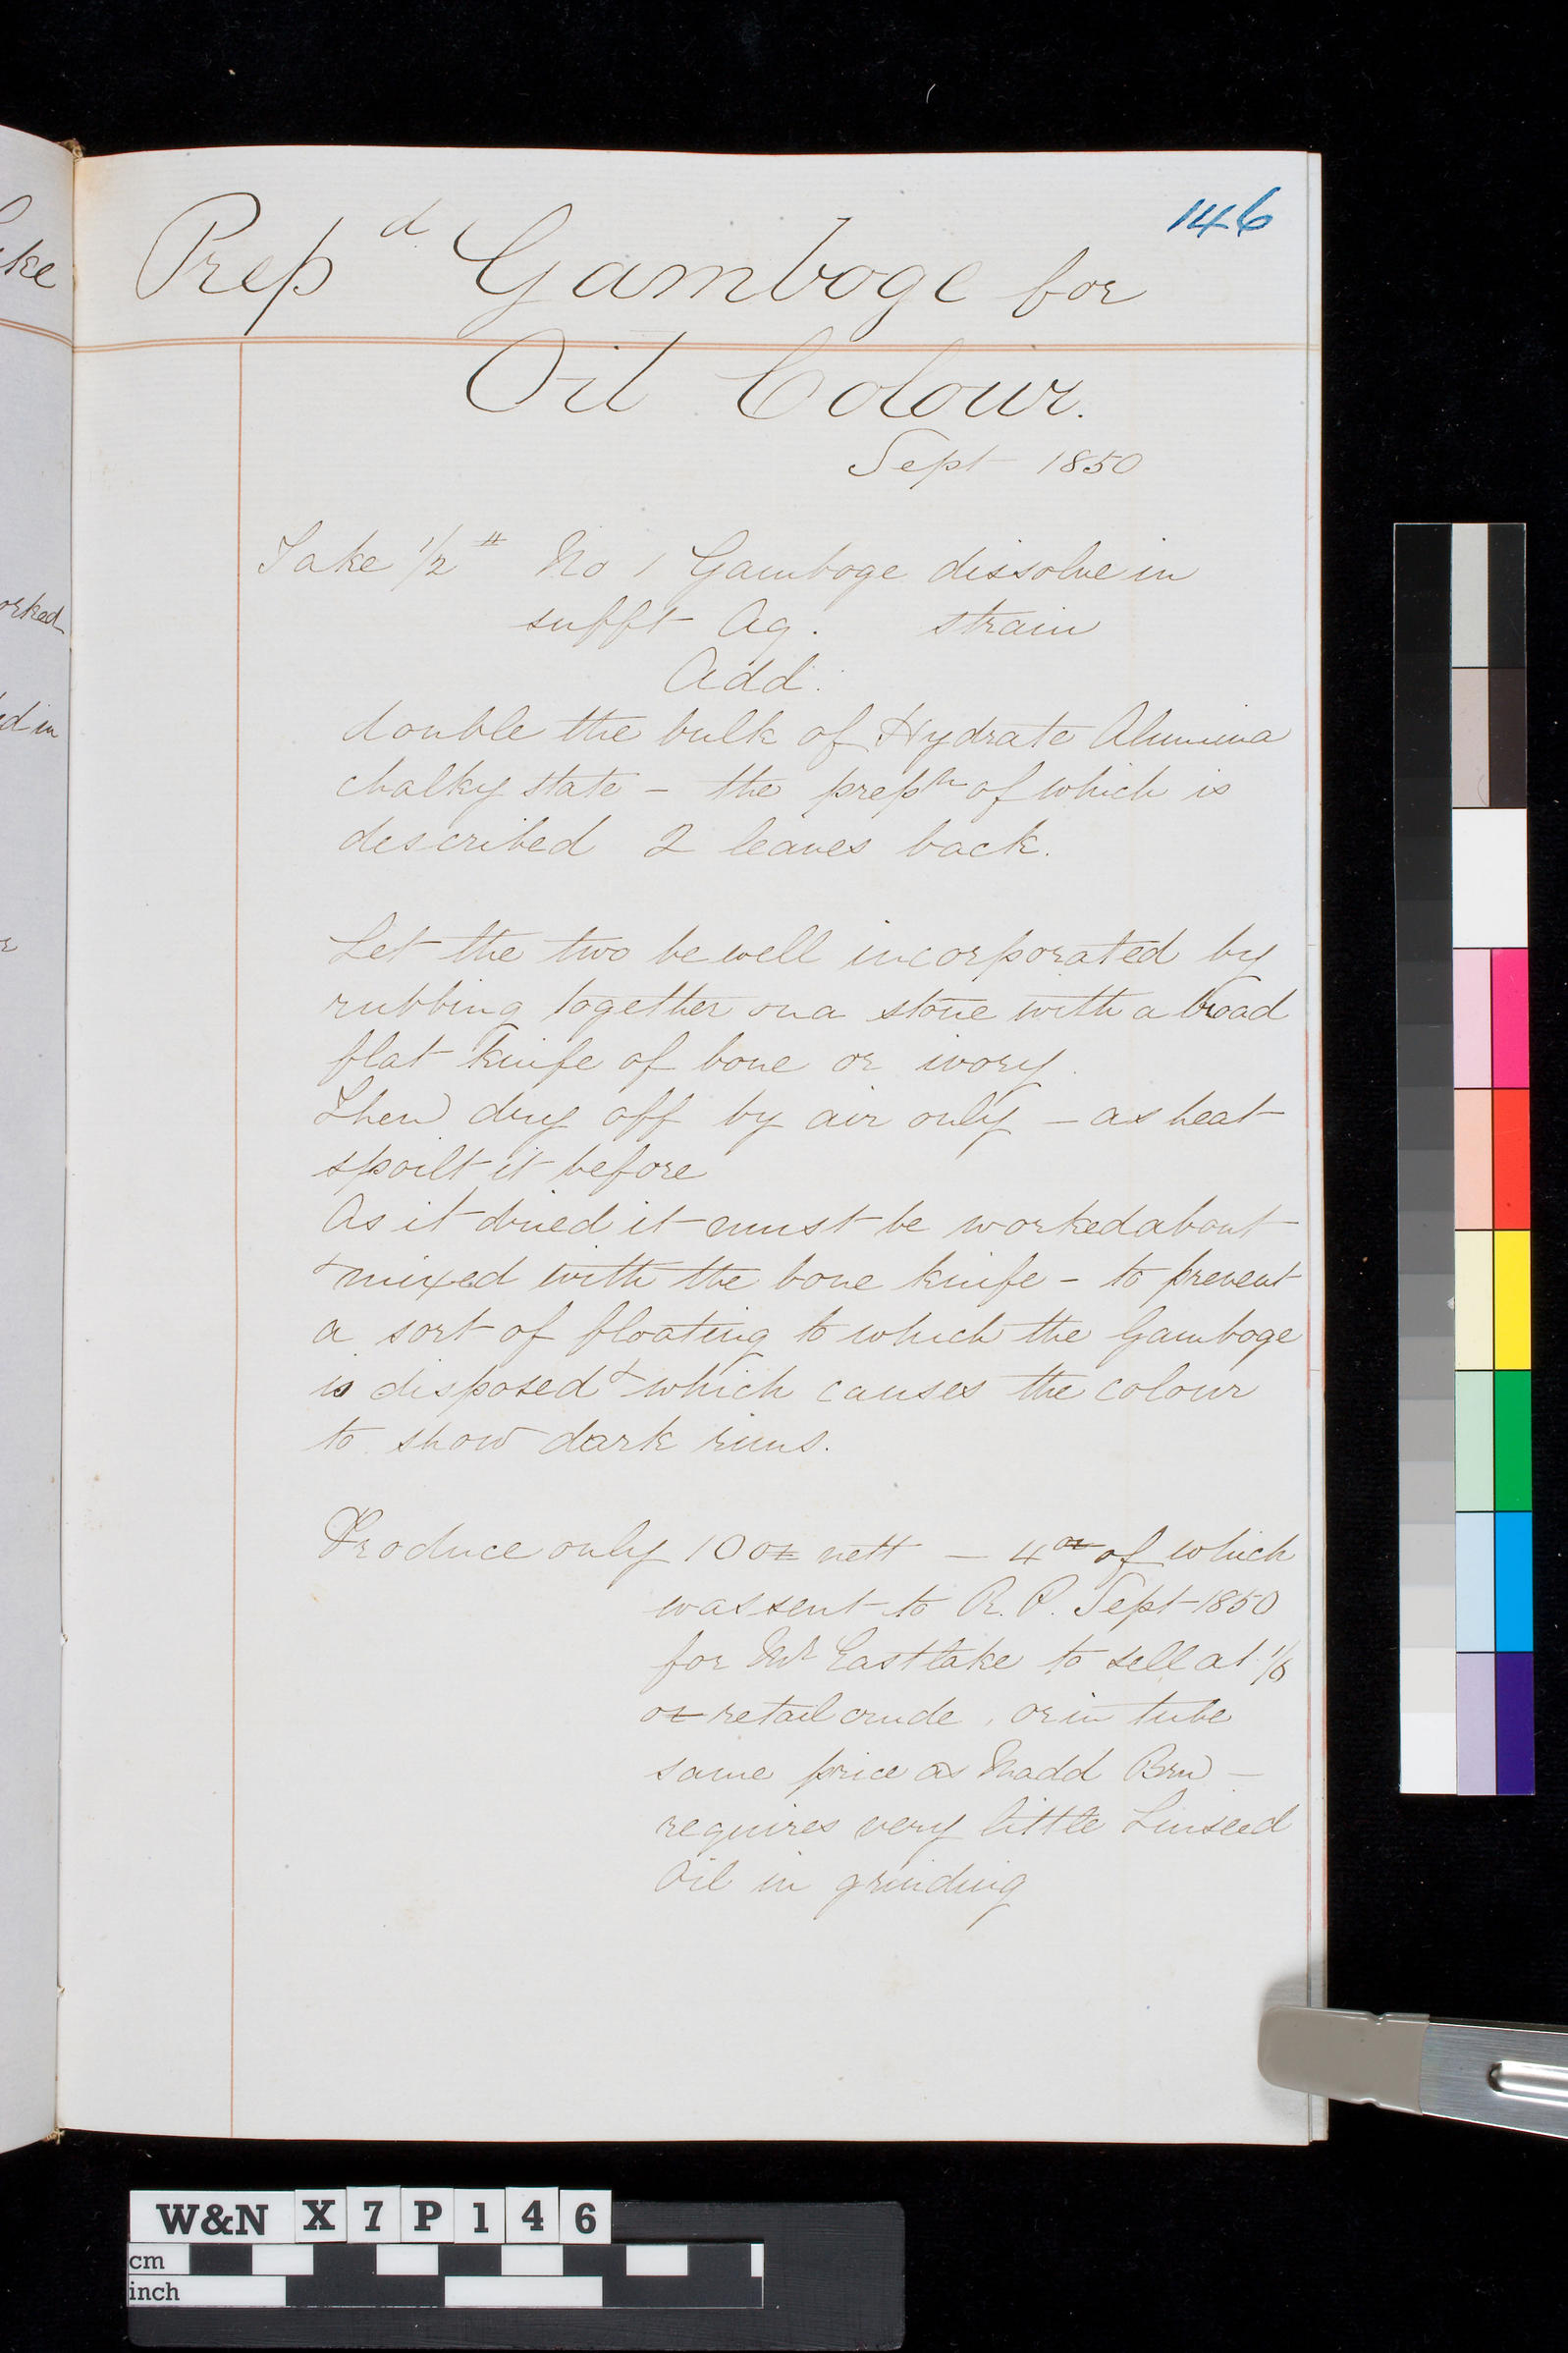 146
Prepd Gamboge for
Oil Colour.
Sept 1850
Take 1/2 # No 1 Gamboge dissolve in
suffft Aq. strain
Add.
double the bulk of Hydrate Alumina
chalky state - the prepn of which is
described 2 leaves back.
Let the two be well incorporated by
rubbing together on a stone with a broad
flat knife of bone or ivory.
Then dry off by air only - as heat
spoilt it before
As it dried it must be worked about
& mixed with the bone knife - to prevent
a sort of floating to which the Gamboge
is disposed & which causes the colour
to show dark rims.
Produce only 10 oz nett - 4 oz of which
was sent to R. P. Sept 1850
for Mr Eastlake to sell at 1/6
oz retail crude, or in tube
same price as Madd Brn -
requires very little Linseed
Oil in grinding
ke
orked
d in
r
W&N X 7 P 1 4 6
cm
inch